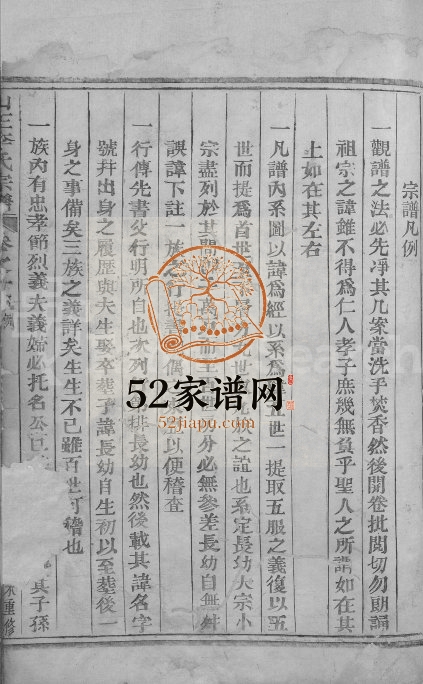 宗譜凡例
一觀譜之法必先凈其几案當洗手焚香然後開卷批閱切勿朗誦
祖宗之諱雖不得為仁人孝子庶幾無負乎聖人之所謂如在其
上如在其左右
一凡譜內系圖以諱為經以系為五世一提取五服之義復以五
世而提為首世族之誼也系定長幼大宗小
宗盡列於其間分必無參差長幼自無舛
誤諱下註一族之行以便稽查
一行傳先書父行明所自也次列排長幼也然後載其諱名字
號并出身之履歷與夫生娶卒葬子諱長幼自生初以至葬後一
身之事備矣三族之義詳矣生生不已雖百世可稽也
一族內有忠孝節烈義夫義婦必托名公巨其子孫
氏宗譜
重修
52家谱网
52jiapu.com